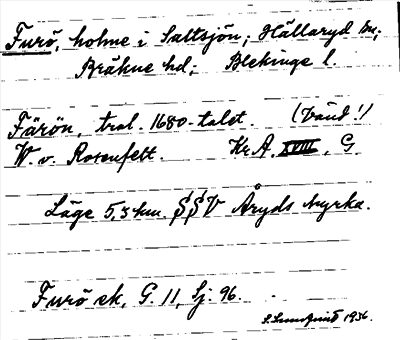 Furö, holme i Saltsjön; Hällaryd sn;
Bräkne hd; Blekinge l.
Färön, trol. 1680-talet. (Vänd!)
W. v. Rosenfelt. Kr A. XVIII, G
Läge 5,3 km. SSV Åryds kyrka.
Furö ek, G. 11, Sj. 96.
S. Sundquist 1936.